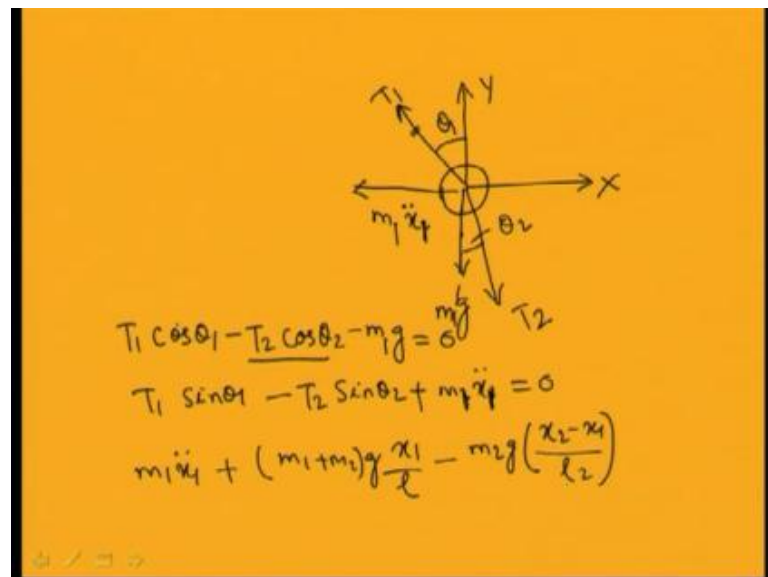 Y
T1
θ1
X
m1ẍ1
θ2
m1g
T2
T1 cosθ1 - T2 cosθ2 - m1g = 0
T1 sinθ1 - T2 sinθ2 + m1ẍ1 = 0
m1ẍ1 + (m1+m2)g x1/l - m2g((x2-x1)/l2)